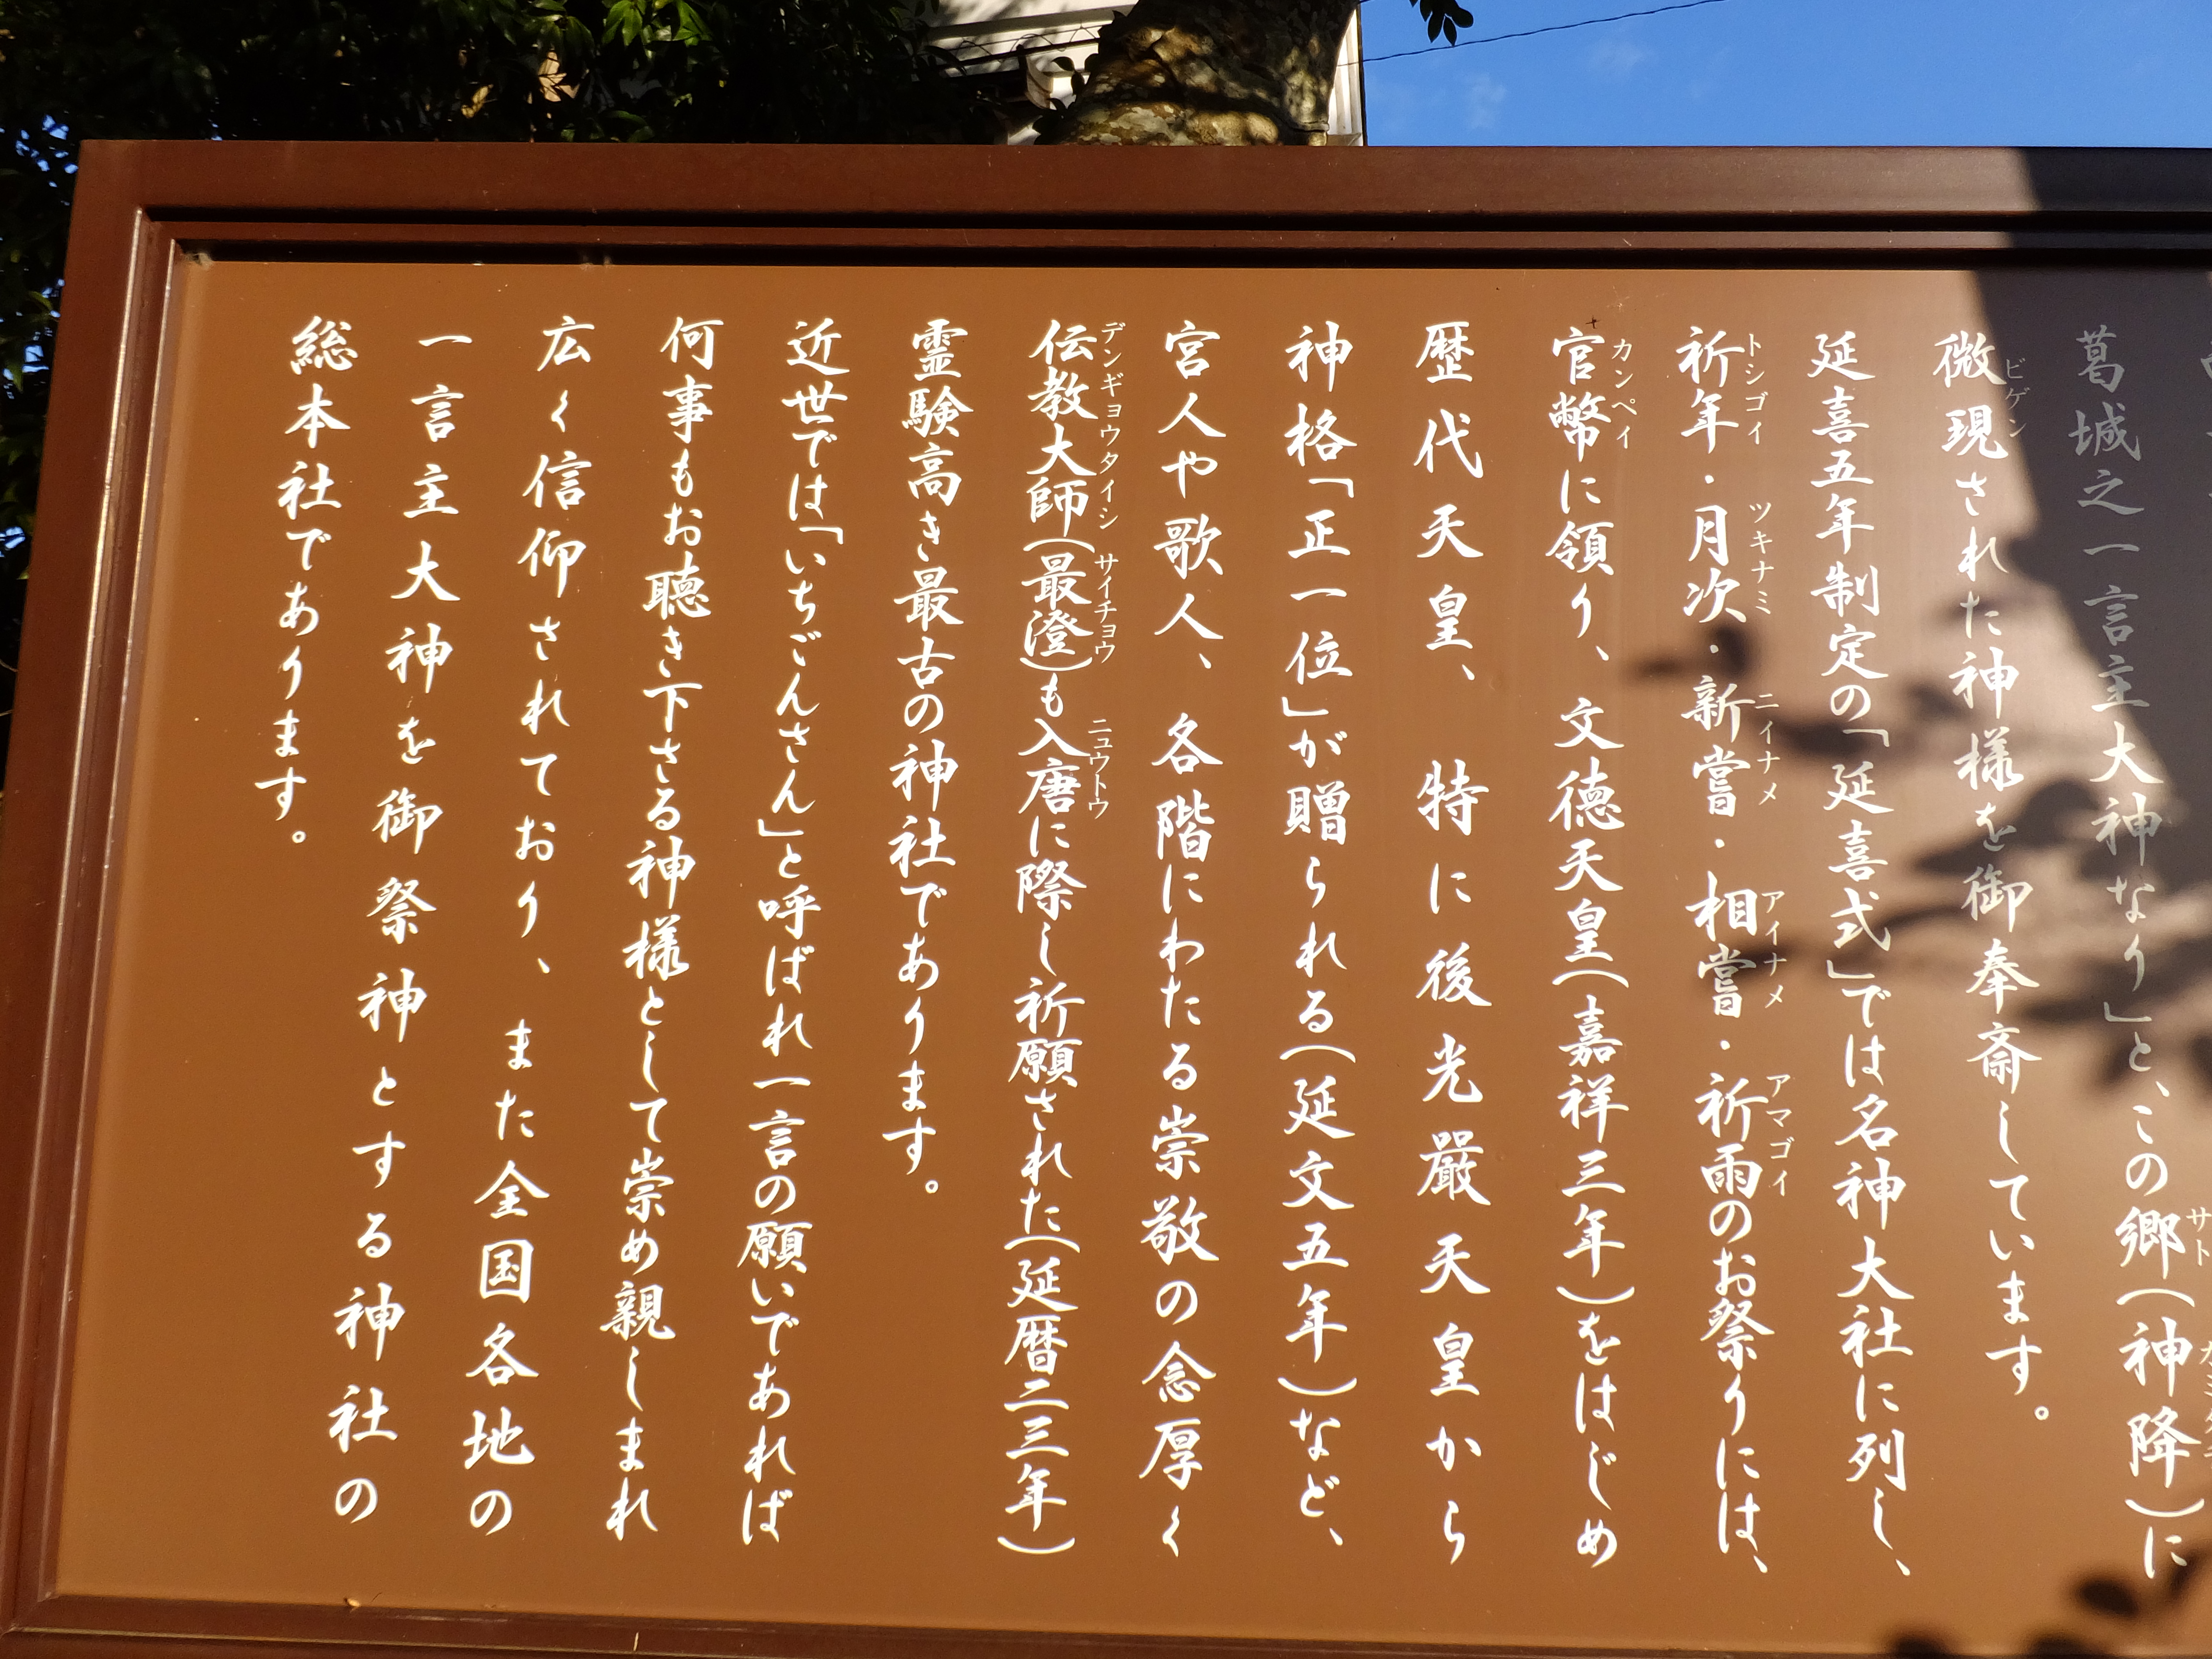 葛城之一言主大神なり」と、この郷(神降)に
微現された神様を御奉斎しています。
延喜五年制定の「延喜式」では名神大社に列し、
祈年・月次・新嘗・相嘗・祈雨のお祭りには、
官幣に領り、文徳天皇(嘉祥三年)をはじめ
歴代天皇、特に後光嚴天皇から
神格「正一位」が贈られる(延文五年)など、
宮人や歌人、各階にわたる崇敬の念厚く
伝教大師(最澄)も入唐に際し祈願された(延暦二三年)
霊験高き最古の神社であります。
近世では「いちごんさん」と呼ばれ一言の願いであれば
何事もお聴き下さる神様として崇め親しまれ
広く信仰されており、また全国各地の
一言主大神を御祭神とする神社の
総本社であります。
サト
ビゲン
トシゴイ ツキナミ ニイナメ アイナメ アマゴイ
カンペイ
デンギョウタイシ サイチョウ ニュウトウ